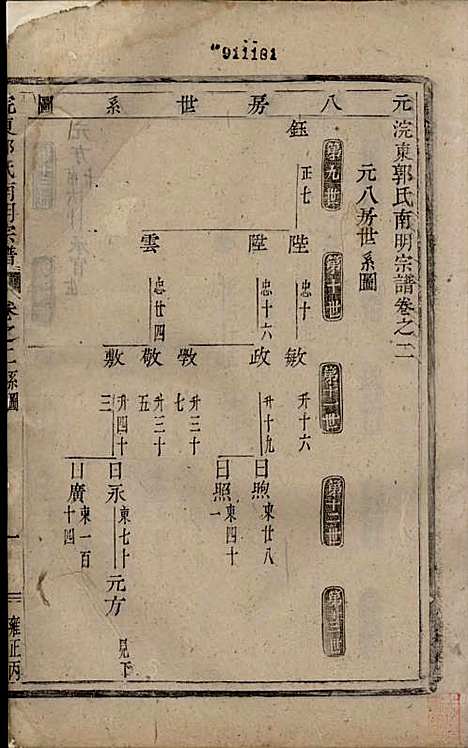 911181
元八房世系圖
浣東郭氏南明宗譜卷之二
元八房世系圖
第九世
第十世
第十一世
第十二世
第十三世
鈺
正七
陞
忠十
陞
忠十六
雲
忠廿四
敏
升十六
政
升十九
敩
升三十七
敬
升三十五
敷
升四十三
日煦
東廿八
日照
東四十一
日永
東七十
日廣
東一百十四
元方
見下
浣東郭氏南明宗譜
卷之二系圖
一
雍正丙